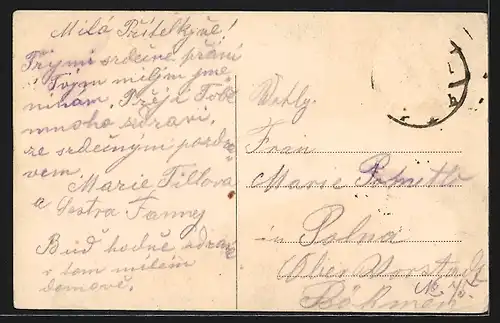 Milá Přítelkyně!
Přijmi srdečné přání
k Tvým milým jme-
ninám. Přeji Tobě
mnoho zdraví.
se srdečným pozdra-
vem.
Marie Tillova
a Sestra Fanny
Buď hodně zdravá
v tom milém
domově.
Wohlg.
Frau
Marie
in Polna
Ober Vorstadt
No.
Böhmen